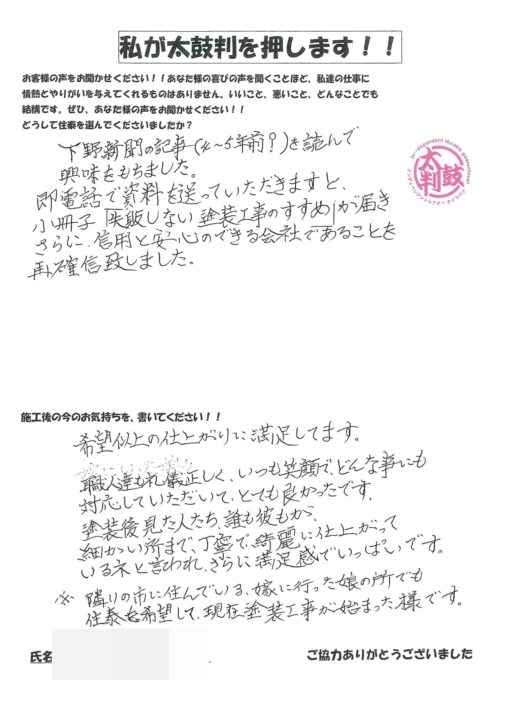 私が太鼓判を押します！！
お客様の声をお聞かせください！！あなた様の喜びの声を聞くことほど、私達の仕事に
情熱とやりがいを与えてくれるものはありません。いいこと、悪いこと、どんなことでも
結構です。ぜひ、あなた様の声をお聞かせください！！
どうして住泰を選んでくださいましたか？
下野新聞の記事(4～5年前?)を読んで
興味をもちました。
即電話で資料を送っていただきますと、
小冊子「失敗しない塗装工事のすすめ」が届き
さらに、信用と安心のできる会社であることを
再確信致しました。
太鼓判
施工後の今のお気持ちを、書いてください！！
希望以上の仕上がりに満足してます。
職人達も礼儀正しく、いつも笑顔で、どんな事にも
対応していただいて、とても良かったです。
塗装後見た人たち、誰も彼もが、
細かい所まで、丁寧で、綺麗に仕上がって
いるネと言われ、さらに満足感でいっぱいです。
※ 隣りの市に住んでいる、嫁に行った娘の所でも
住泰を希望して、現在塗装工事が始まった様です。
氏名
ご協力ありがとうございました